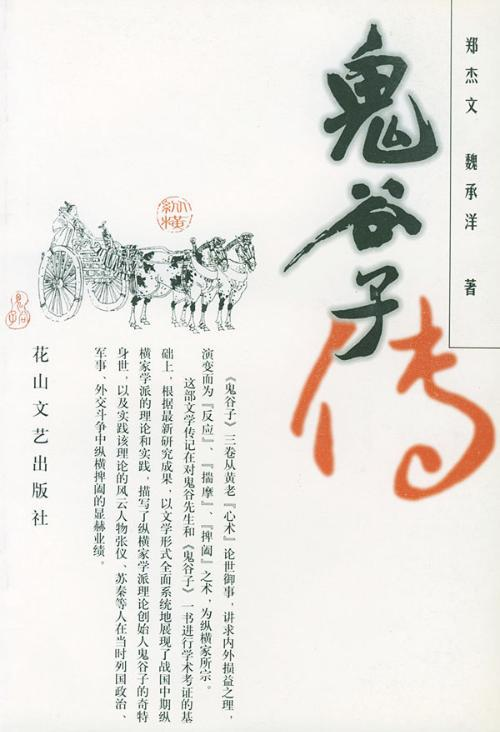 郑杰文 魏承洋 著
鬼谷子传
《鬼谷子》三卷从黄老『心术』论世御事，讲求内外损益之理，
演变而为『反应』、『揣摩』、『捭阖』之术，为纵横家所宗。
这部文学传记在对鬼谷先生和《鬼谷子》一书进行学术考证的基
础上，根据最新研究成果，以文学形式全面系统地展现了战国中期纵
横家学派的理论和实践，描写了纵横家学派理论创始人鬼谷子的奇特
身世，以及实践该理论的风云人物张仪、苏秦等人在当时列国政治、
军事、外交斗争中纵横捭阖的显赫业绩。
花山文艺出版社